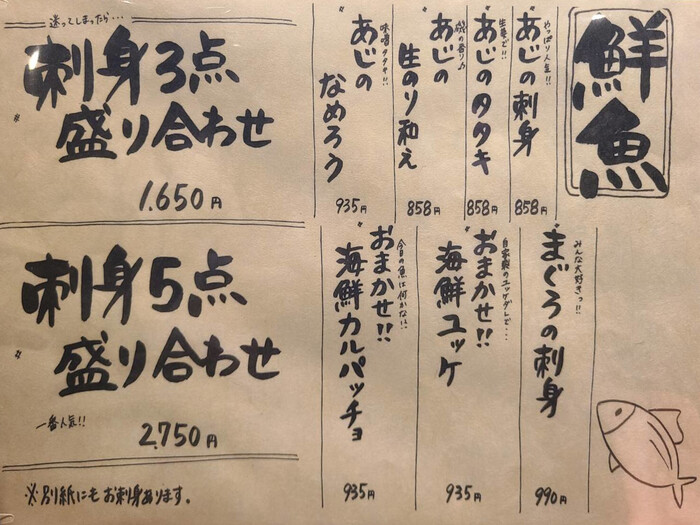 鮮魚
やっぱり人気!!
あじの刺身
858円
生姜で!!
あじのタタキ
858円
磯の香り♪
あじの
生のり和え
858円
味噌タタキ!!
あじの
なめろう
935円
みんな大好きっ!!
まぐろの刺身
990円
自家製のユッケダレで…
おまかせ!!
海鮮ユッケ
935円
今日の魚は何かな!?
おまかせ!!
海鮮カルパッチョ
935円
迷ってしまったら…
刺身3点
盛り合わせ
1.650円
刺身5点
盛り合わせ
一番人気!!
2.750円
※別紙にもお刺身あります。